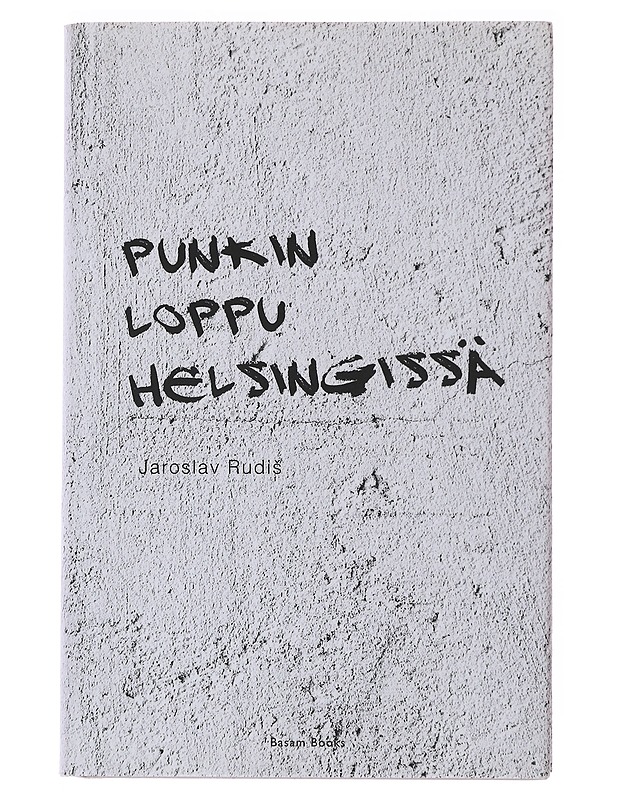 PUNKIN
LOPPU
HELSINGISSÄ
Jaroslav Rudiš
Basam Books